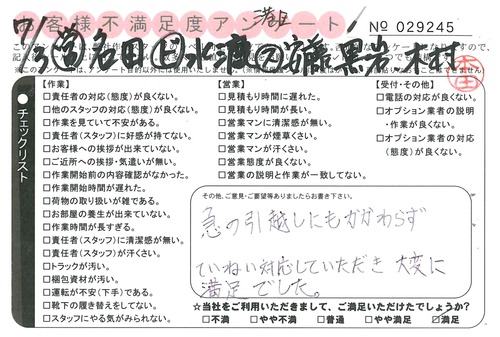 お客様不満足度アンケート
港北
No 029245
木村
チェックリスト
【作業】
□責任者の対応(態度)が良くない。
□他のスタッフの対応(態度)が良くない。
□作業を見ていて不安がある。
□責任者(スタッフ)に好感が持てない。
□お客様への挨拶が出来ていない。
□ご近所への挨拶・気遣いが無い。
□作業開始前の内容確認がなかった。
□作業開始時間が遅れた。
□荷物の取り扱いが雑である。
□お部屋の養生が出来ていない。
□作業時間が長すぎる。
□責任者(スタッフ)に清潔感が無い。
□責任者(スタッフ)が汗くさい。
□トラックが汚い。
□梱包資材が汚い。
□運転が不安(下手)である。
□靴下の履き替えをしてない。
□スタッフにやる気がみられない。
【営業】
□見積もり時間に遅れた。
□見積もり時間が長い。
□営業マンに清潔感が無い。
□営業マンが煙草くさい。
□営業マンが汗くさい。
□営業態度が良くない。
□営業の説明と作業が一致してない。
【受付・その他】
□電話の対応が良くない。
□オプション業者の説明
・作業が良くない。
□オプション業者の対応
(態度)が良くない。
その他、ご意見・ご要望等ありましたらお書き下さい。
急の引越しにもかかわらず
ていねい対応していただき 大変に
満足でした。
☆当社をご利用いただきまして、ご満足いただけたでしょうか?
□不満 □やや不満 □普通 □やや満足 □満足